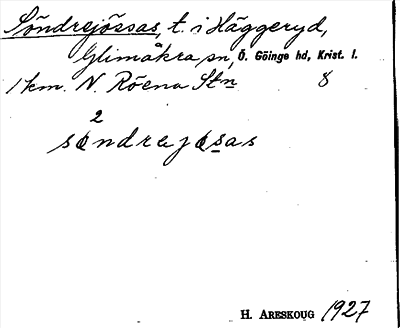 Söndrejössas, t. i Häggeryd,
Glimåkra sn, Ö. Göinge hd, Krist. l.
1 km. N. Röena Stn 8
2
søndrejøsas
H. ARESKOUG 1927